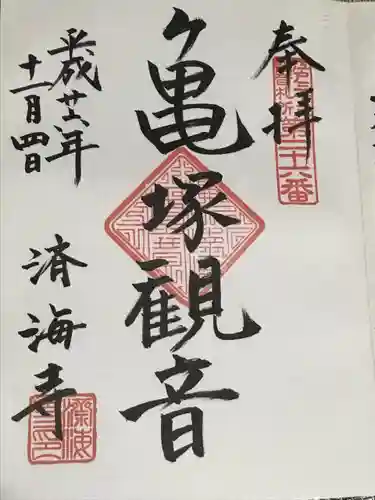 奉拝
札所第二十六番
亀塚観音
平成廿六年
十一月四日
済海寺